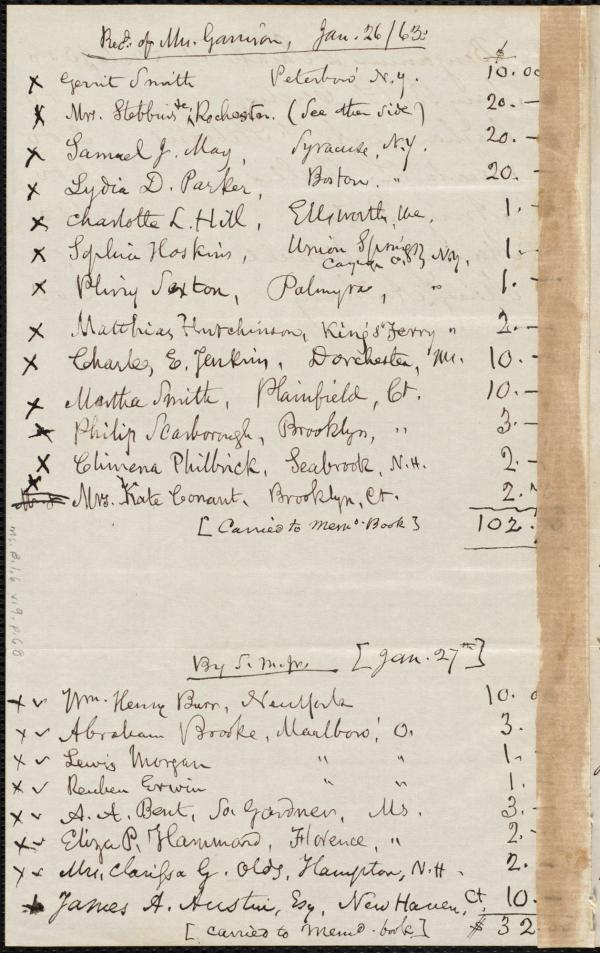 Rec'd. of Mr. Garrison, Jan. 26/63:
$
x Gerrit Smith Peterboro' N.Y. 10.00
x Mrs. Stebbins &c, Rochester. (See other side) 20. -
x Samuel J. May, Syracuse, N.Y. 20. -
x Lydia D. Parker, Boston. " 20.
x Charlotte L. Hill, Ellsworth, Me. 1. -
x Sophia Hoskins, Union Springs, N.Y. 1. -
Cayuga Co.
x Pliny Sexton, Palmyra, " 1. -
x Matthias Hutchinson, King's Ferry " 2. -
x Charles E. Jenkins, Dorchester, Ms. 10. -
x Martha Smith, Plainfield, Ct. 10. -
x Philip Scarborough, Brooklyn, " 3. -
x Climena Philbrick, Seabrook, N.H. 2. -
x Mrs. Kate Conant. Brooklyn, Ct. 2. "
[Carried to Mem'o. Book] 102.
Ms. B.1.6 v.9, p.68
By S. M. Jr. [Jan. 27th]
x ✓ Wm. Henry Burr, New York 10. 0
x ✓ Abraham Brooke, Marlboro', O. 3.
x ✓ Lewis Morgan " " 1. -
x ✓ Reuben Erwin " " 1.
x ✓ A. A. Bent, So. Gardner, Ms. 3. -
x ✓ Eliza P. Hammond, Florence, " 2. -
x x Mrs. Clarissa G. Olds, Hampton, N.H. 2.
x James A. Austin, Esq, New Haven, Ct. 10.
[Carried to Mem'd. book] $32